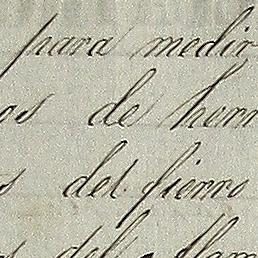 para medir
os de horn
s del fierro
s del flam